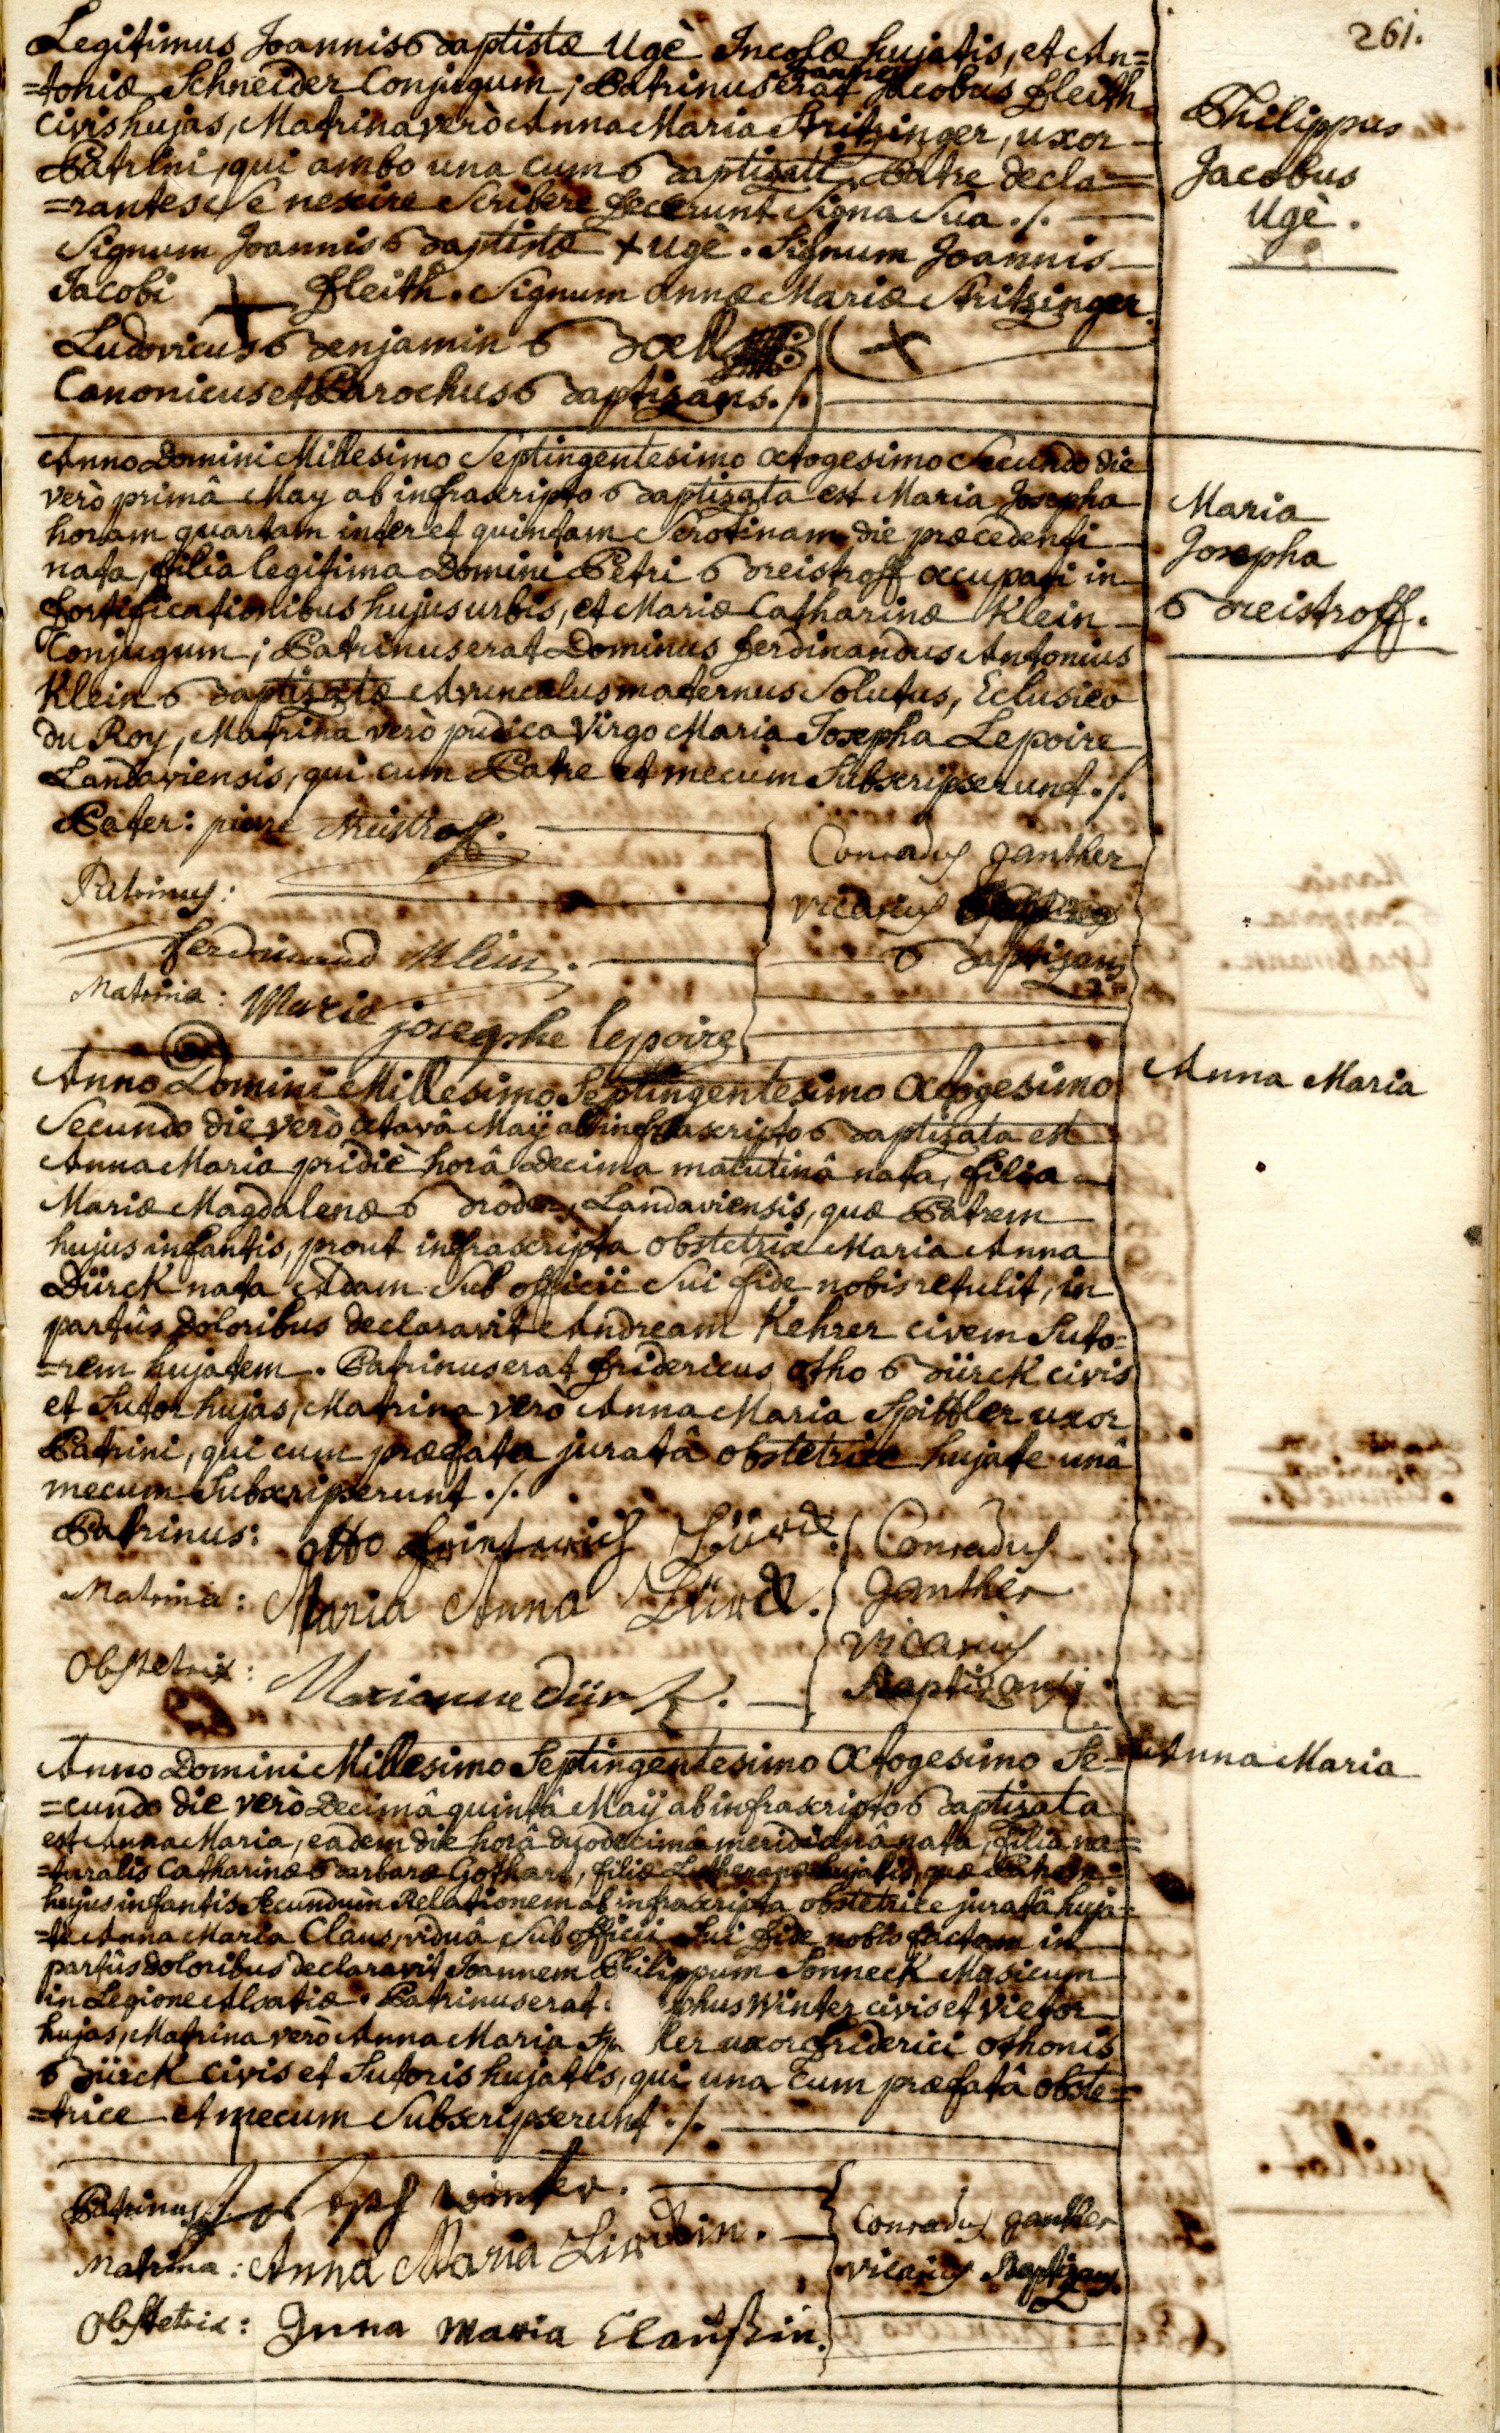 261.
Legitimus Joannis Baptistæ Ugè Incolæ hujatis, et An=
=toniæ Schneider Conjugum; Patrinus erat Joannes Jacobus Fleith
civis hujas, Matrina verò Anna Maria Stritzinger, uxor
Patrini, qui ambo una cum Baptizati Patre decla=
=rantes se nescire scribere fecerunt signa sua ./.
Signum Joannis Baptistæ + Ugè. Signum Joannis
Jacobi + Fleith. Signum Annæ Mariæ Stritzinger.
Ludovicus Benjamin Boell +
Canonicus et Parochus Baptizans ./.
Philippus
Jacobus
Ugè.
Anno Domini Millesimo Septingentesimo octogesimo Secundo die
verò primâ May ab infrascripto Baptizata est Maria Josepha
horam quartam inter et quintam Serotinam die præcedenti
nata, filia legitima Domini Petri Breistroff occupati in
fortificationibus hujus urbis, et Mariæ Catharinæ Klein
Conjugum; Patrinus erat Dominus Ferdinandus Antonius
Klein Baptizatæ Avunculus maternus Solutus, Eclusier
du Roy, Matrina verò pudica Virgo Maria Josepha Lepoire
Landaviensis, qui cum Patre et mecum Subscripserunt ./.
Maria
Josepha
Breistroff.
Pater: pierre Breistroff.
Patrinus:
ferdinand Klein.
Matrina: Marie josephe lepoire
Conradus ganther
vicarius
Baptizans
Anno Domini Millesimo Septingentesimo Octogesimo
Secundo die verò octavâ Maÿ ab infrascripto Baptizata est
Anna Maria pridiè horâ decima matutinâ nata, filia
Mariæ Magdalenæ Landaviensis, quæ Patrem
hujus infantis, prout infrascripta obstetrix Maria Anna
Dürck nata Adam Sub officii Sui fide nobis retulit, in
partûs doloribus declaravit Andream Kehrer civem Suto=
=rem hujatem. Patrinus erat Fridericus Otho Bürck civis
et Sutor hujas, Matrina verò Anna Maria Spittler uxor
Patrini, qui cum præfata juratâ obstetrice hujate unâ
mecum Subscripserunt ./.
Anna Maria
Patrinus: otto
Matrina: Maria Anna
Obstetrix: Marianne dürck.
Conradus
ganther
vicarius
Baptizans
Anno Domini Millesimo Septingentesimo Octogesimo Se=
=cundo die verò Decimâ quintâ Maÿ ab infrascripto Baptizata
est Anna Maria, eadem die horâ duodecimâ meridianâ nata, filia na=
=turalis Catharinæ Barbaræ Gothart, filiæ Lutheranæ hujatis, quæ Patrem
hujus infantis Secundùm Relationem ab infrascripta obstetrice juratâ huja=
=te Anna Maria Claus, viduâ, Sub officii Sui fide nobis factam in
partûs doloribus declaravit Joannem Philippum Sonneck Musicum
in Legione Alsatiæ. Patrinus erat phus Winter civis et Vietor
hujas, Matrina verò Anna Maria Sp ler uxor Friderici Othonis
Bürck civis et Sutoris hujatis, qui una cum præfatâ obste=
=trice et mecum Subscripserunt ./.
Anna Maria
Patrinus: Joseph winter.
Matrina: Anna Maria
Obstetrix: Anna Maria Claußin.
Conradus ganther
vicarius Baptizans.